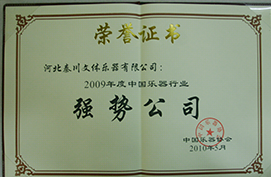 荣誉证书
河北秦川文体乐器有限公司：
2009年度中国乐器行业
强势公司
中国乐器协会
2010年5月